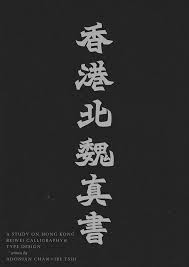 香港北魏真書
A STUDY ON HONG KONG
BEIWEI CALLIGRAPHY &
TYPE DESIGN
written by
ADONIAN CHAN